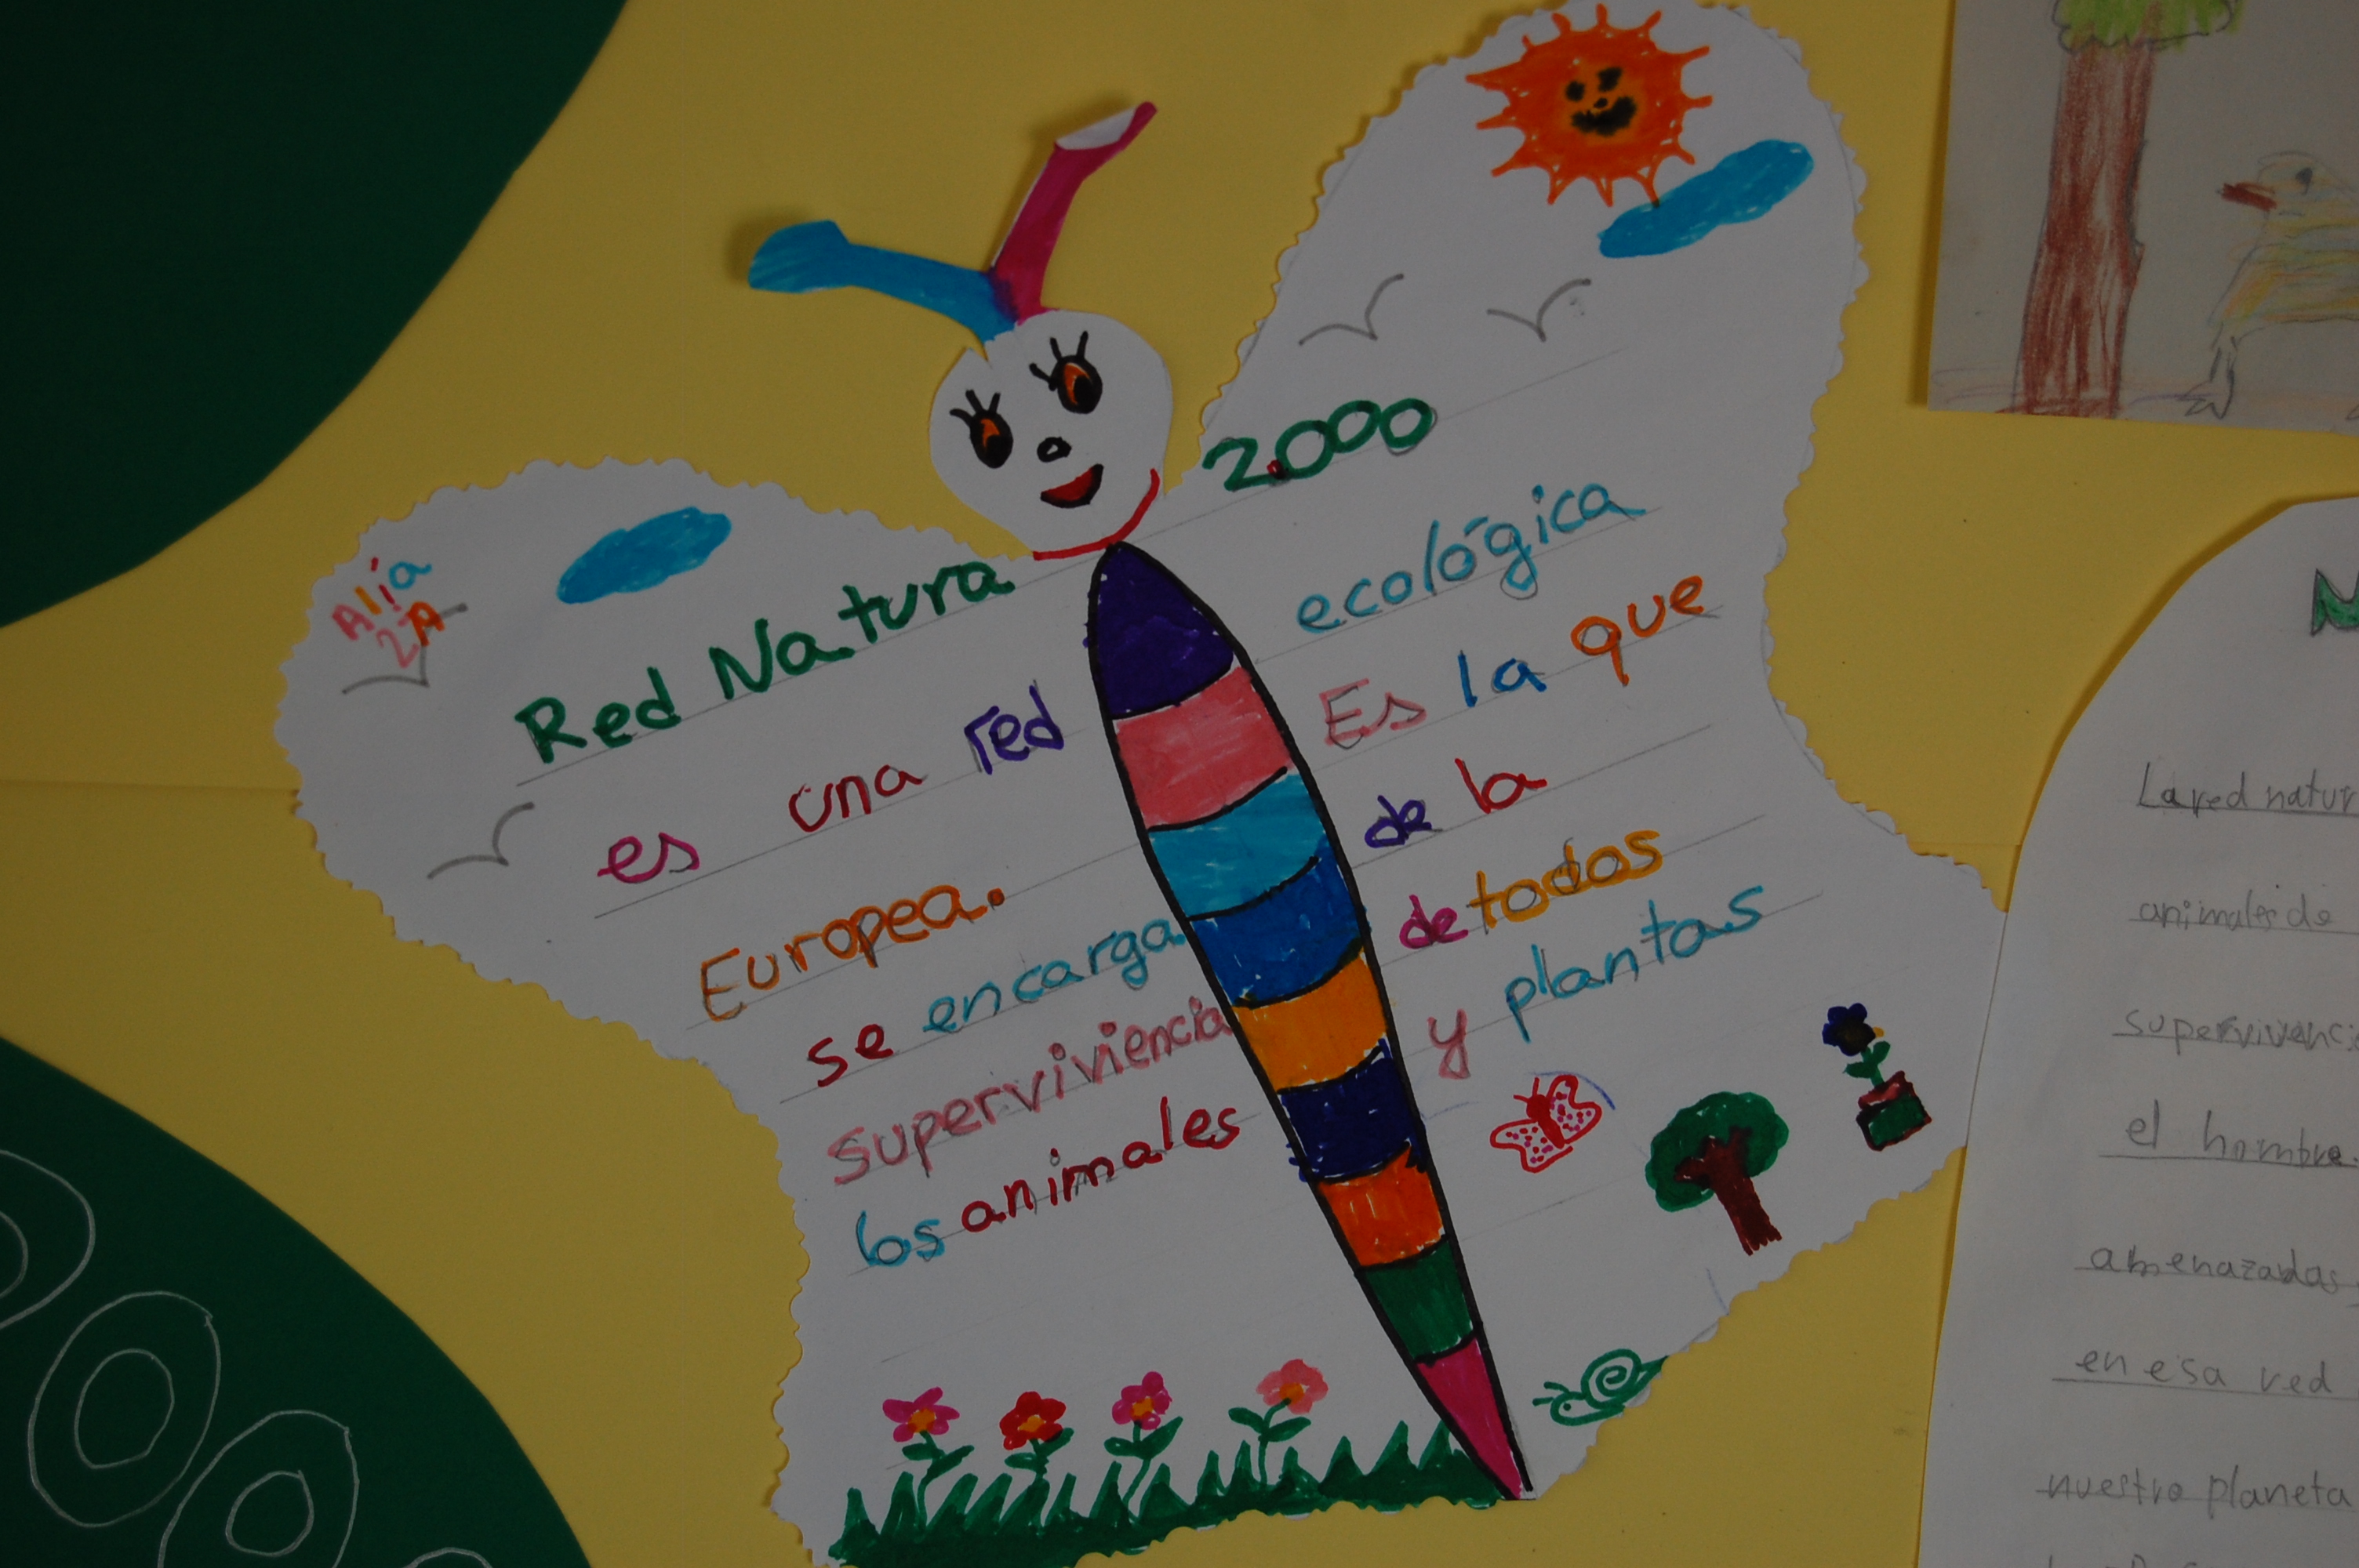 Alía
2ºA
Red Natura 2.000
es una red ecológica
Europea. Es la que
se encarga de la
superviviencia de todos
los animales y plantas
La red natur
animales de
supervivenci
el hombre.
amenazadas,
en esa red
nuestro planeta